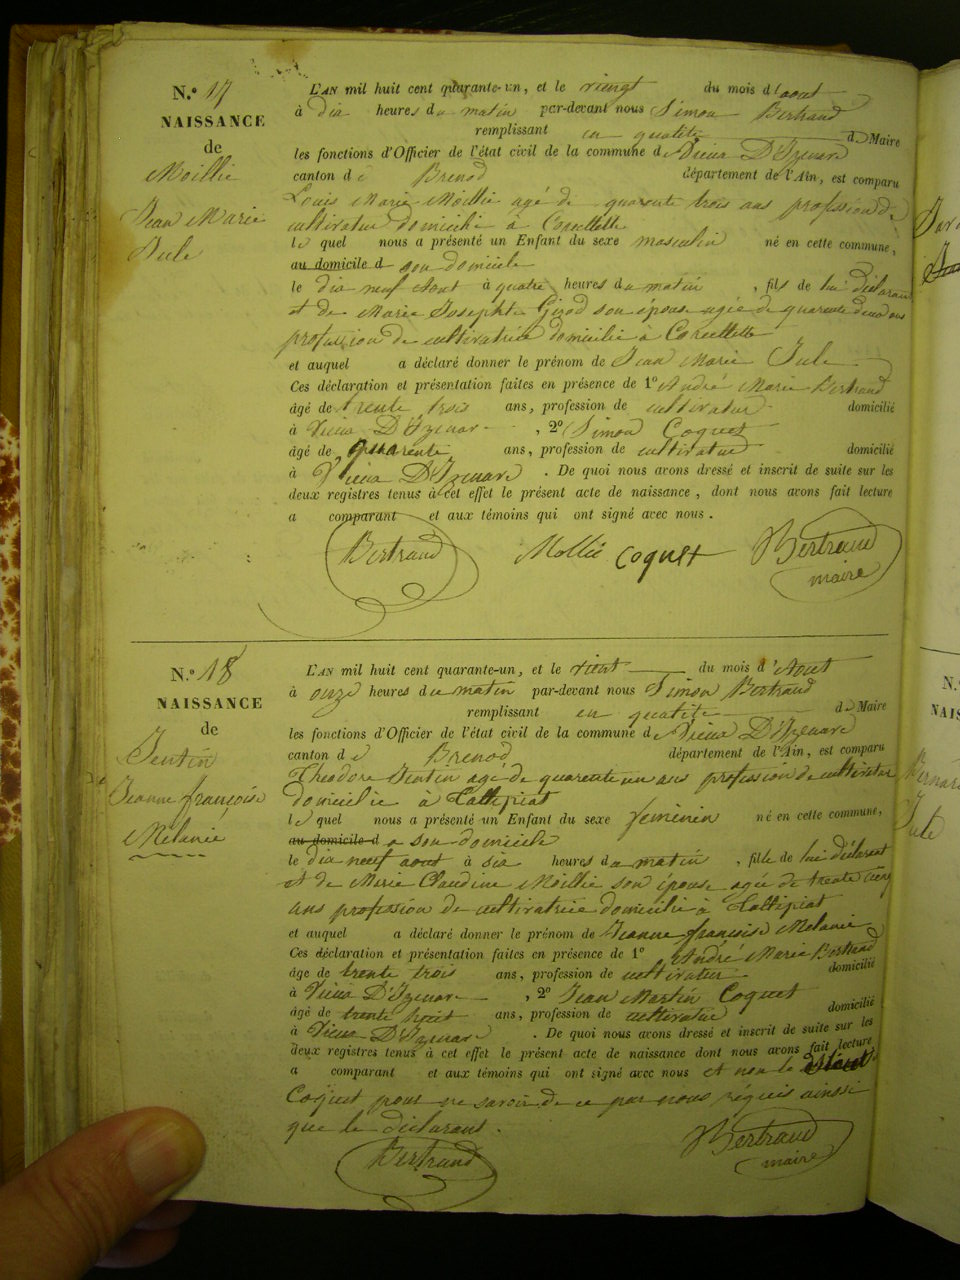 N.° 17
NAISSANCE
de
Moillie
Jean Marie
Jule
L'AN mil huit cent quarante-un, et le viengt du mois d'aout
à dix heures du matin par-devant nous Simon Bertrand
remplissant en qualité de Maire
les fonctions d'Officier de l'état civil de la commune de Vieux D'Izenave
canton de Brenod département de l'Ain, est comparu
Louis Marie Moillie agé de quarente trois ans profession de
cultivateur domicilié à Corcellette
le quel nous a présenté un Enfant du sexe masculin né en cette commune,
au domicile d son domicile
le dix neuf Aout à quatre heures du matin, fils de lui déclarant
et de Marie Josephte Girod son épouse agée de quarente deux ans
profession de cultivatrice domicilié à Corcellette
et auquel a déclaré donner le prénom de Jean Marie Jule
Ces déclaration et présentation faites en présence de 1° André Marie Bertrand
âgé de trente trois ans, profession de cultivateur domicilié
à Vieux D'Izenave, 2° Simon Coquet
âgé de quarente ans, profession de cultivateur domicilié
à Vieux D'Izenave. De quoi nous avons dressé et inscrit de suite sur les
deux registres tenus à cet effet le présent acte de naissance, dont nous avons fait lecture
a comparant et aux témoins qui ont signé avec nous.
Bertrand Mollié coquet Bertrand
maire
N.° 18
NAISSANCE
de
Jentin
Jeanne françoise
Mélanie
L'AN mil huit cent quarante-un, et le vient du mois d'Aout
à onze heures du matin par-devant nous Simon Bertrand
remplissant en qualité de Maire
les fonctions d'Officier de l'état civil de la commune de Vieux D'Izenave
canton de Brenod département de l'Ain, est comparu
Theodore Jentin agé de quarente un ans profession de cultivateur
domicilie à
le quel nous a présenté un Enfant du sexe feminin né en cette commune,
au domicile d a son domicile
le dix neuf aout à six heures du matin, fille de lui déclarant
et de Marie Claudine Moillie son épouse agée de trente
ans profession de cultivatrice domicilié à
et auquel a déclaré donner le prénom de Jeanne françoise Melanie
Ces déclaration et présentation faites en présence de 1° André Marie Bertrand
âgé de trente trois ans, profession de cultivateur domicilié
à Vieux D'Izenave, 2° Jean Martin Coquet
âgé de trente huit ans, profession de cultivateur domicilié
à Vieux D'Izenave. De quoi nous avons dressé et inscrit de suite sur les
deux registres tenus à cet effet le présent acte de naissance dont nous avons fait lecture
a comparant et aux témoins qui ont signé avec nous et non le
Coquet pour ne savoir de ce par nous réquis ainsi
que le déclarant.
Bertrand Bertrand
maire